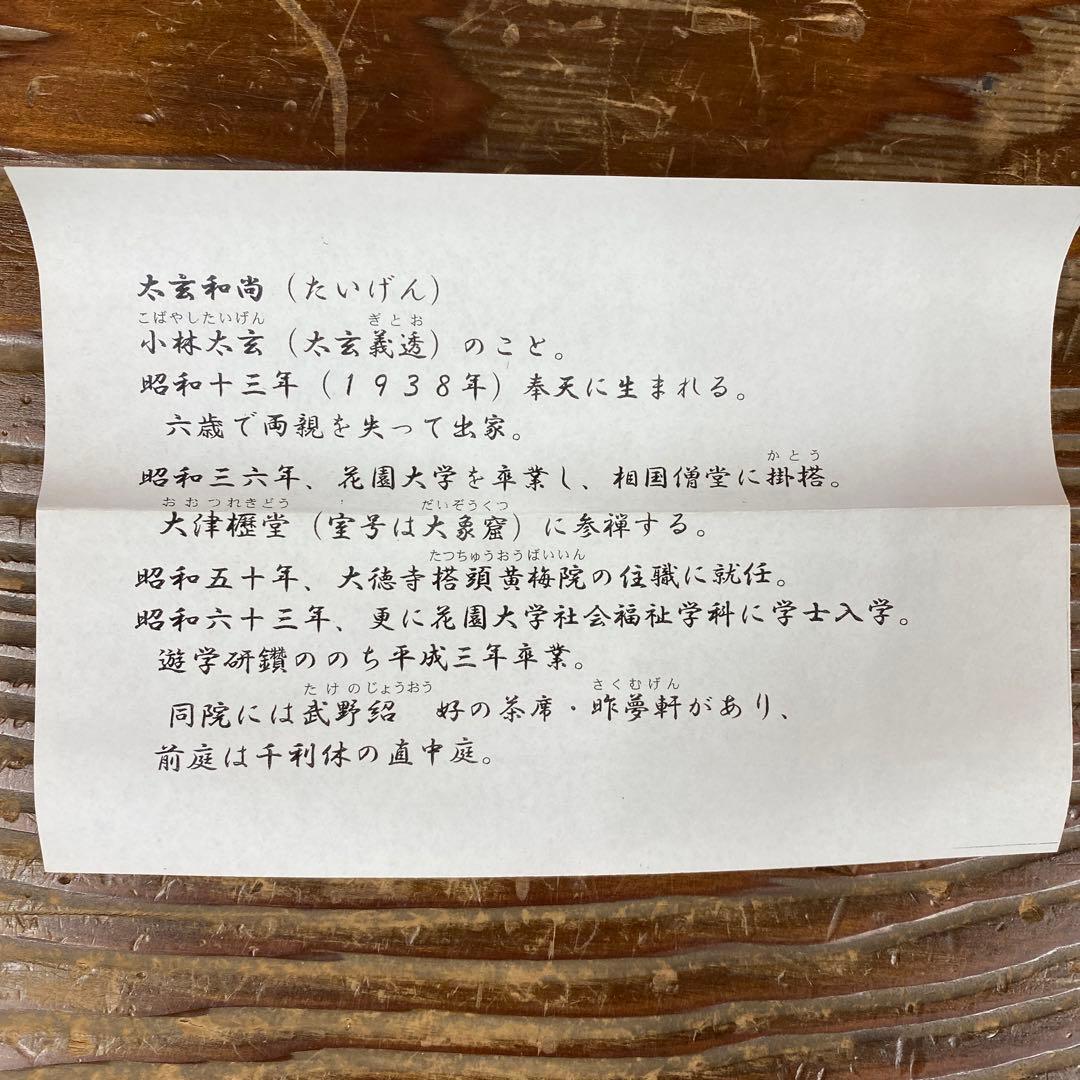 太玄和尚（たいげん）
こばやしたいげん ぎとお
小林太玄（太玄義透）のこと。
昭和十三年（１９３８年）奉天に生まれる。
六歳で両親を失って出家。
かとう
昭和三六年、花園大学を卒業し、相国僧堂に掛搭。
おおつれきどう だいぞうくつ
大津櫪堂（室号は大象窟）に参禅する。
たつちゅうおうばいいん
昭和五十年、大徳寺搭頭黄梅院の住職に就任。
昭和六十三年、更に花園大学社会福祉学科に学士入学。
遊学研鑽ののち平成三年卒業。
たけのじょうおう さくむげん
同院には武野紹　好の茶席・昨夢軒があり、
前庭は千利休の直中庭。